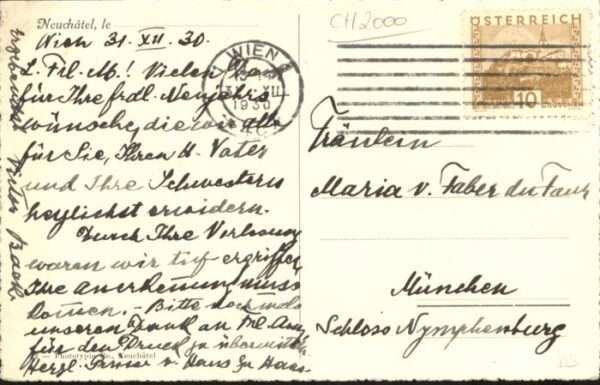 Neuchâtel, le
Wien 31. XII. 30.
L. Frl. M.! Vielen Dank
für Ihre frdl. Neujahrs
wünsche, die wir alle
für Sie, Ihren H. Vater
und Ihre Schwestern
herzlichst erwidern.
Durch Ihre Verlobung
waren wir tief ergriffen
Ihre Anerkennung muss
kommen. - Bitte nochmals
unseren Dank an Frl.
für den Druck zu übermitteln
Herzl. Grüsse v. Haus zu Haus
Ergebenster
— Phototypie Co., Neuchâtel
CH2000
WIEN
XII
1930
ÖSTERREICH
10
Fräulein
Maria v. Faber du Faur
München
Schloss Nymphenburg